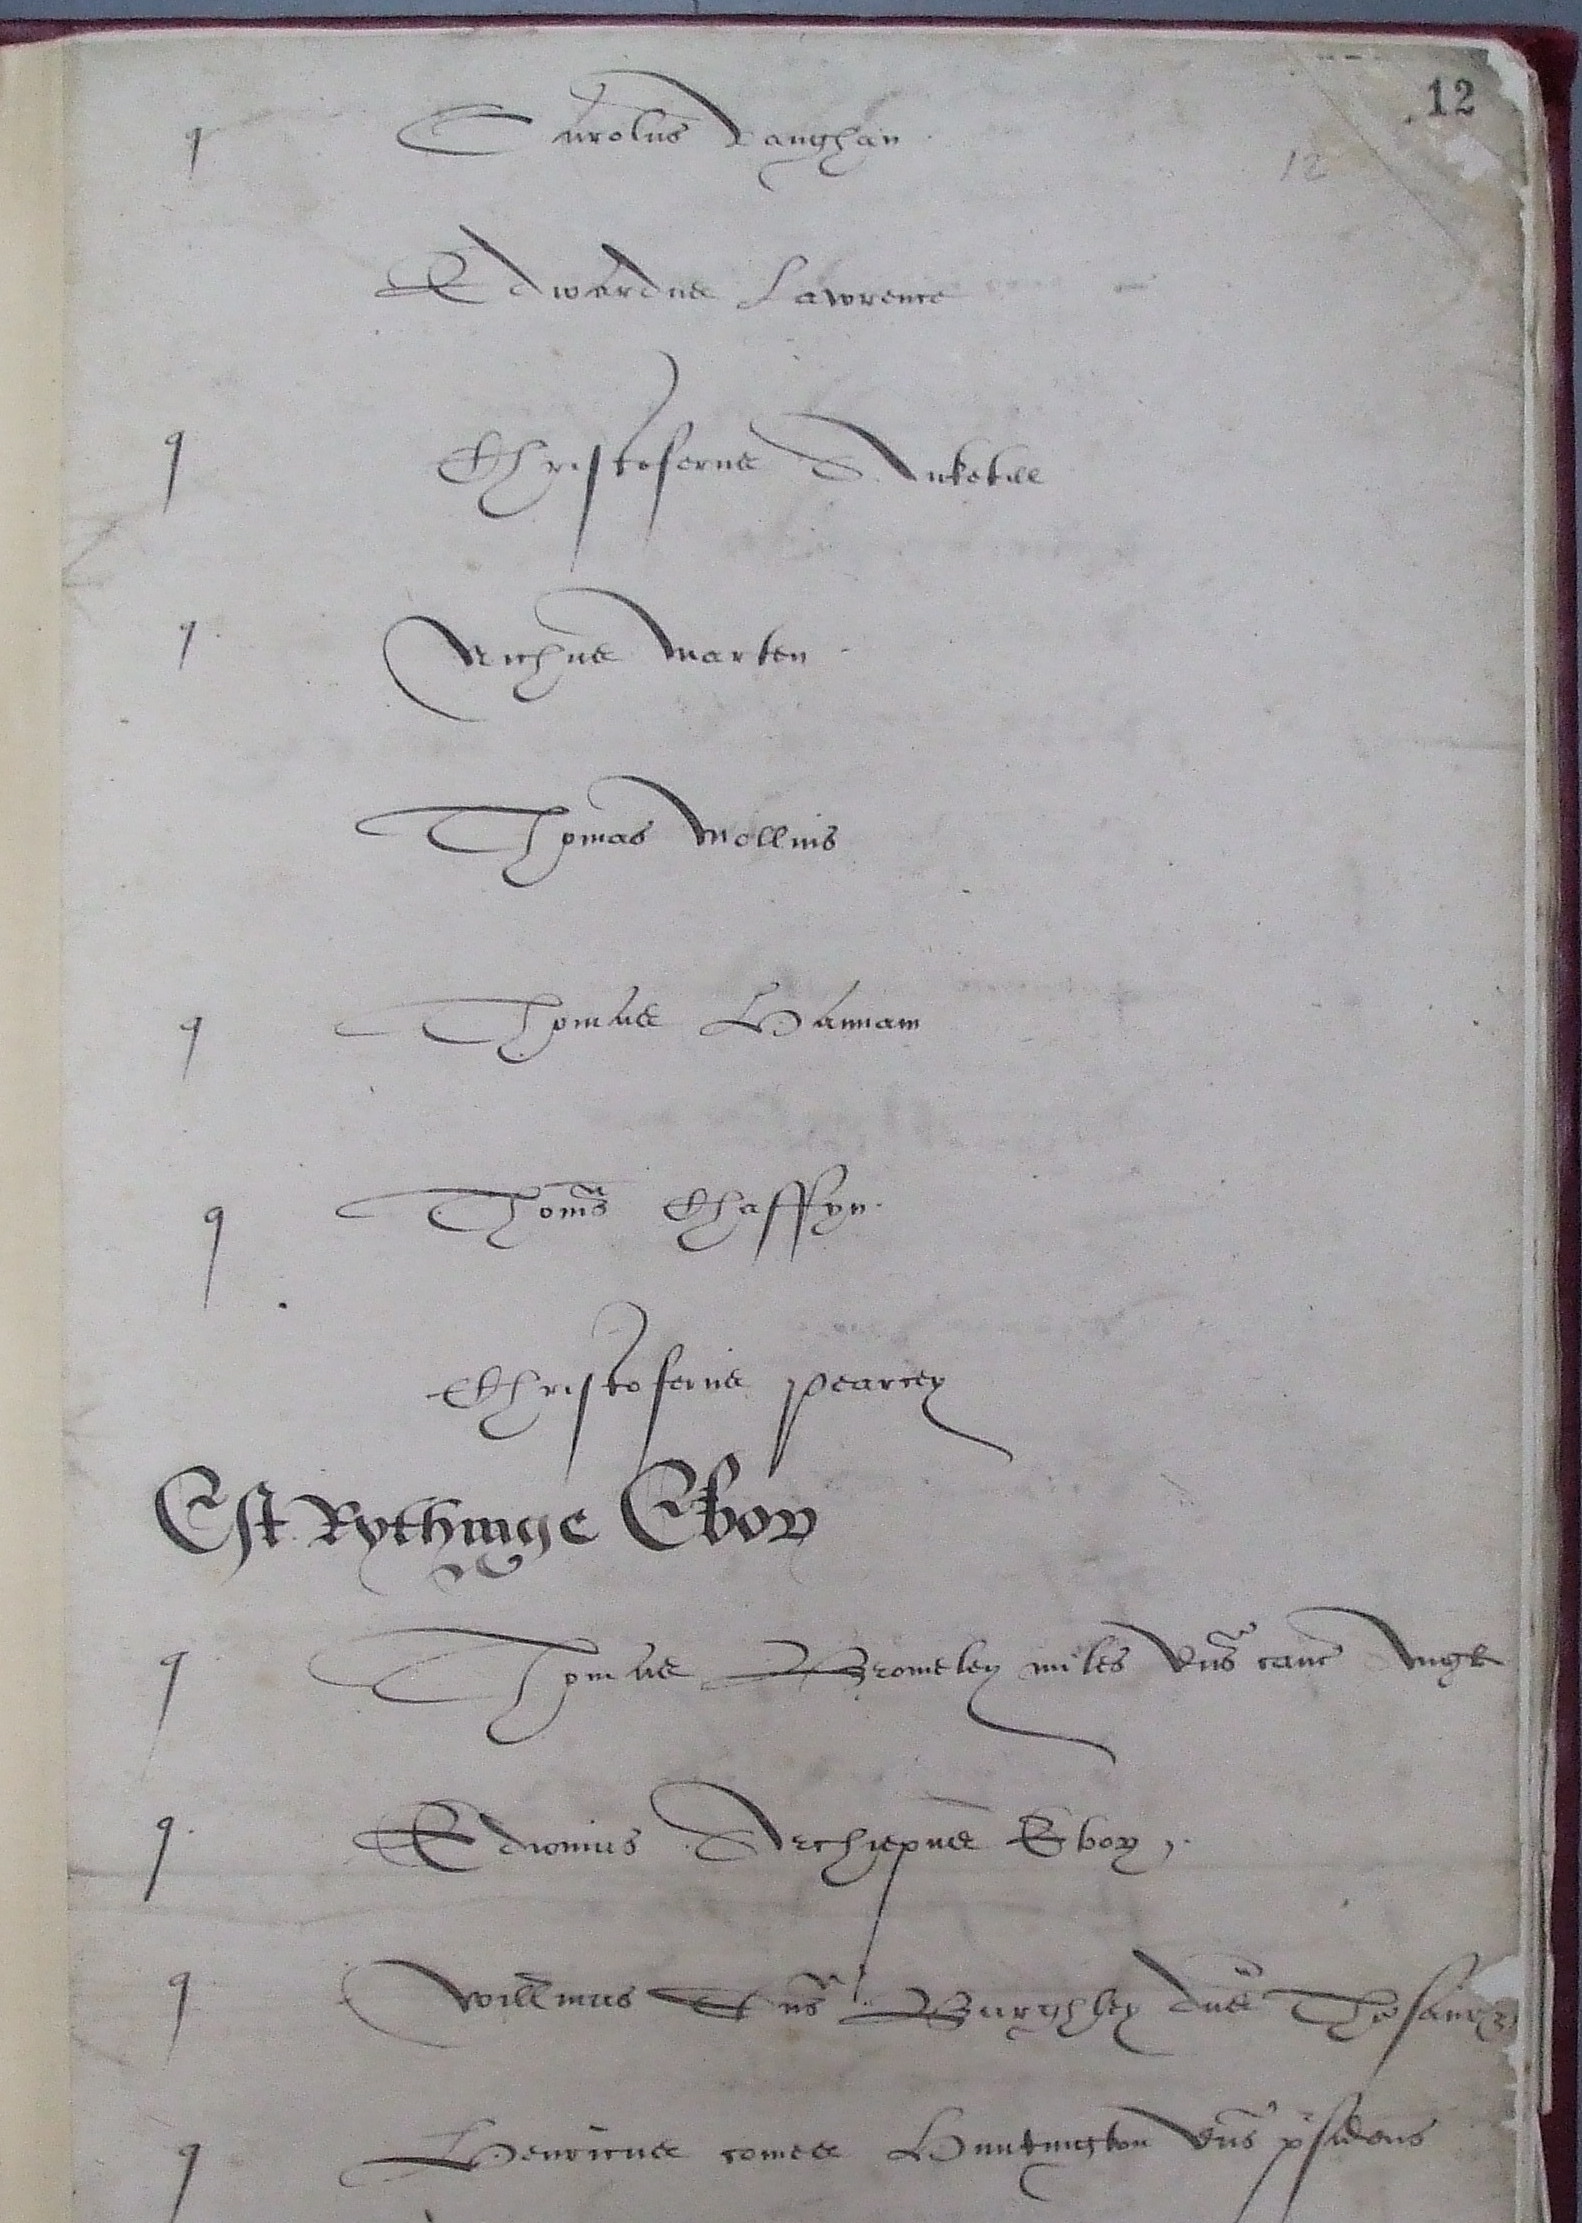 12
q Carolus Vaughan
12
Edwardus Lawrence
q Christoferus Anketill
q Nichus Marten
Thomas Mollins
q Thomas Hannam
q Thomas Chaffyn
Christoferus Pearcey
Est Rythinge Ebor
q Thomas Bromeley miles dns canc Angl
q Edwinus Archiepus Ebor
q Willmus dns Burghley dns Thesaur
q Henricus comes Huntington dns psidens